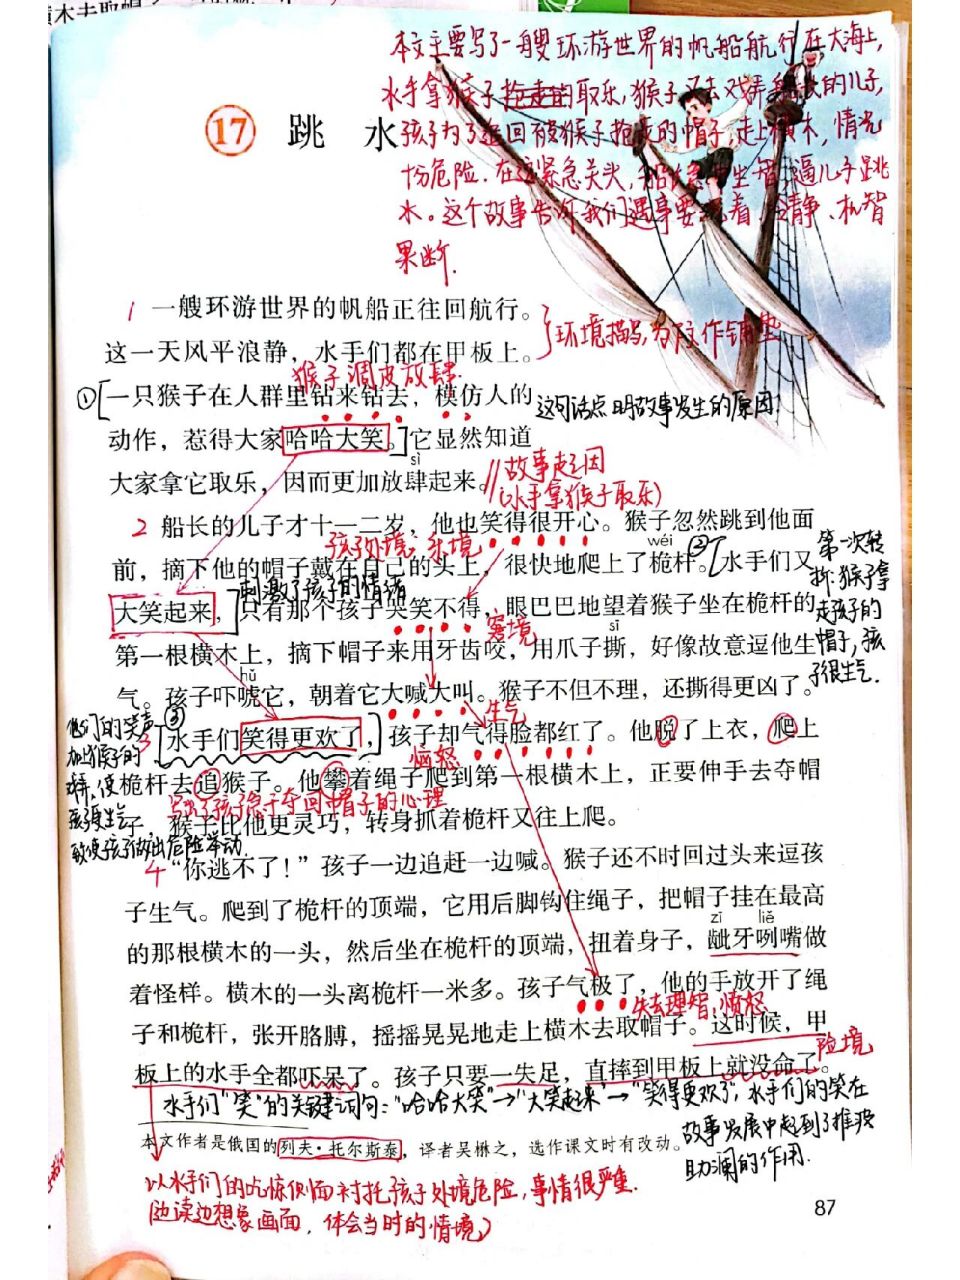 本文主要写了一艘环游世界的帆船航行在大海上,
水手拿猴子取乐,猴子又去戏弄船长的儿子,
17 跳 水
孩子为了追回被猴子抢走的帽子,走上横木,情况
十分危险.在这紧急关头,船长急中生智逼儿子跳
水。这个故事告诉我们遇事要沉着、冷静、机智
果断.
1 一艘环游世界的帆船正往回航行。
环境描写,为下文作铺垫
这一天风平浪静,水手们都在甲板上。
猴子调皮放肆.
①[一只猴子在人群里钻来钻去,模仿人的
这句话点明故事发生的原因.
动作,惹得大家哈哈大笑。]它显然知道
sì
故事起因
大家拿它取乐,因而更加放肆起来。
(水手拿猴子取乐)
2 船长的儿子才十一二岁,他也笑得很开心。猴子忽然跳到他面
孩子处境:乐境
wéi
前,摘下他的帽子戴在自己的头上,很快地爬上了桅杆。②[水手们又
第一次转
折:猴子拿
走孩子的
帽子,孩
子很生气.
刺激了孩子的情绪
大笑起来,]只有那个孩子哭笑不得,眼巴巴地望着猴子坐在桅杆的
窘境
sī
第一根横木上,摘下帽子来用牙齿咬,用爪子撕,好像故意逗他生
hǔ
气。孩子吓唬它,朝着它大喊大叫。猴子不但不理,还撕得更凶了。
生气
他们的笑声
加上猴子的
孩子更生气
致使孩子做出危险举动.
3 ③[水手们笑得更欢了,]孩子却气得脸都红了。他脱了上衣,爬上
恼怒
桅杆去追猴子。他攀着绳子爬到第一根横木上,正要伸手去夺帽
写出了孩子急于夺回帽子的心理
子,猴子比他更灵巧,转身抓着桅杆又往上爬。
4 “你逃不了!”孩子一边追赶一边喊。猴子还不时回过头来逗孩
子生气。爬到了桅杆的顶端,它用后脚钩住绳子,把帽子挂在最高
zī liě
的那根横木的一头,然后坐在桅杆的顶端,扭着身子,龇牙咧嘴做
着怪样。横木的一头离桅杆一米多。孩子气极了,他的手放开了绳
失去理智,愤怒
子和桅杆,张开胳膊,摇摇晃晃地走上横木去取帽子。这时候,甲
险境
板上的水手全都吓呆了。孩子只要一失足,直摔到甲板上就没命了。
水手们“笑”的关键词句:“哈哈大笑”→“大笑起来”→“笑得更欢了”,水手们的笑在
故事发展中起到了推波
助澜的作用.
本文作者是俄国的列夫·托尔斯泰,译者吴楙之,选作课文时有改动。
以水手们的吃惊侧面衬托孩子处境危险,事情很严重.
(边读边想象画面,体会当时的情境)
87